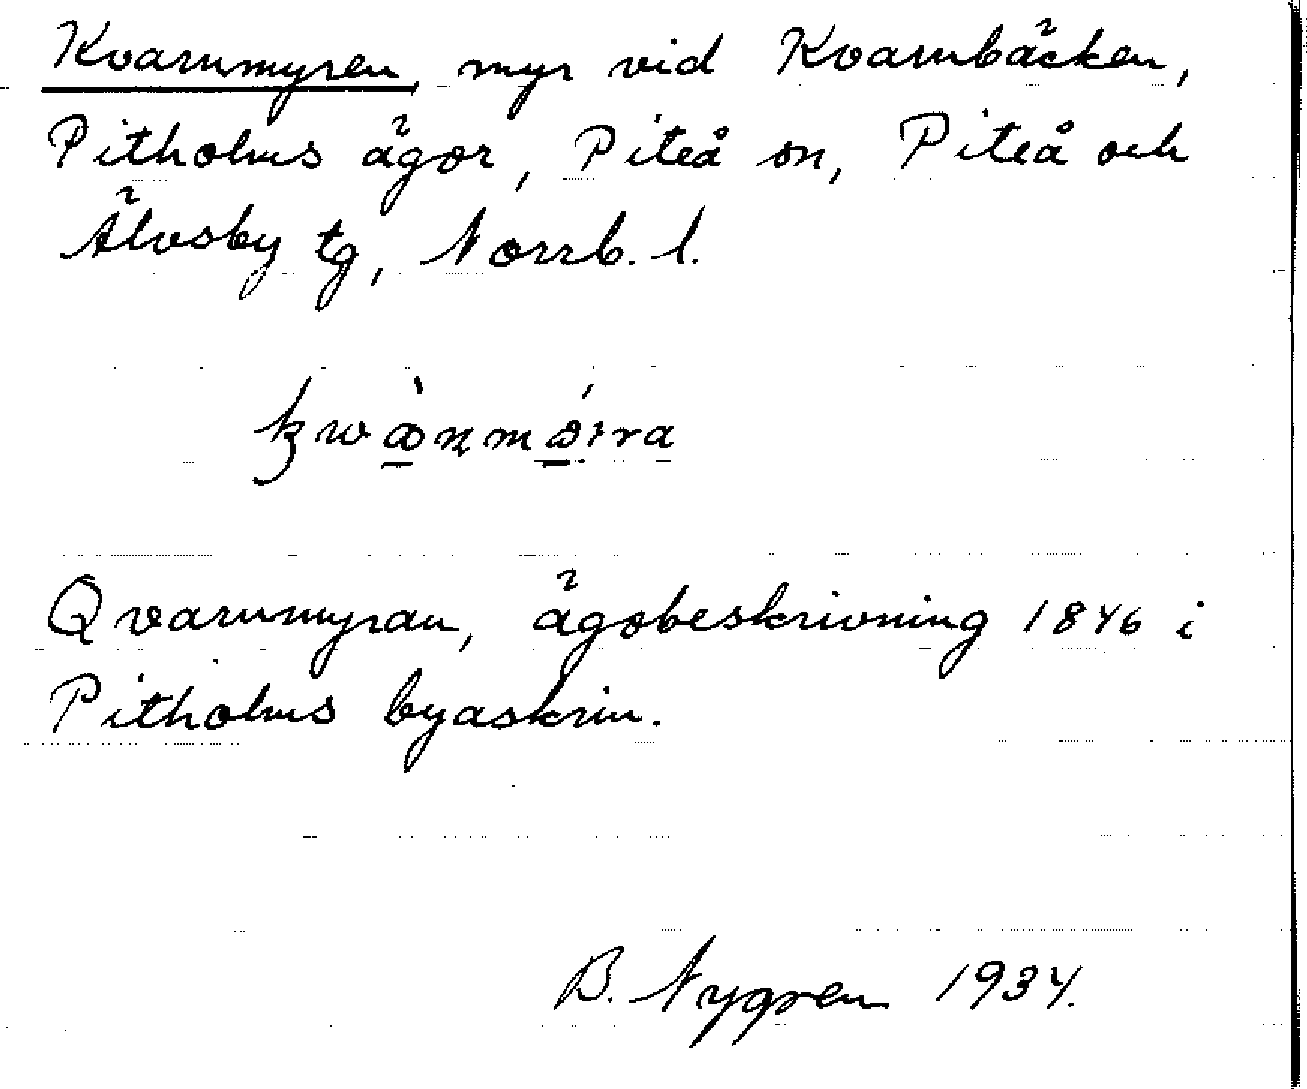 Kvarnmyren, myr vid Kvarnbäcken,
Pitholms ägor, Piteå sn, Piteå och
Älvsby tg, Norrb. l.
Qvarnmyran, ägobeskrivning 1846 i
Pitholms byaskrin.
B. Nygren 1934.